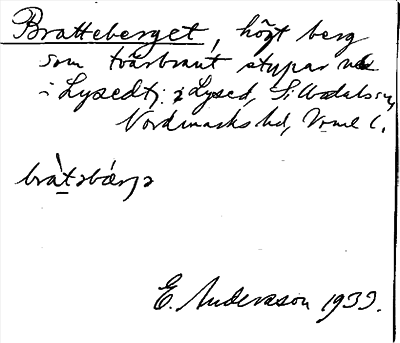 Bratteberget, högt berg
som tvärbrant stupar ned
i Lysedtj. i Lysed, Silbodals sn,
Nordmarks hd, Vrml l.
bràtəbærjə
E. Andersson 1933.